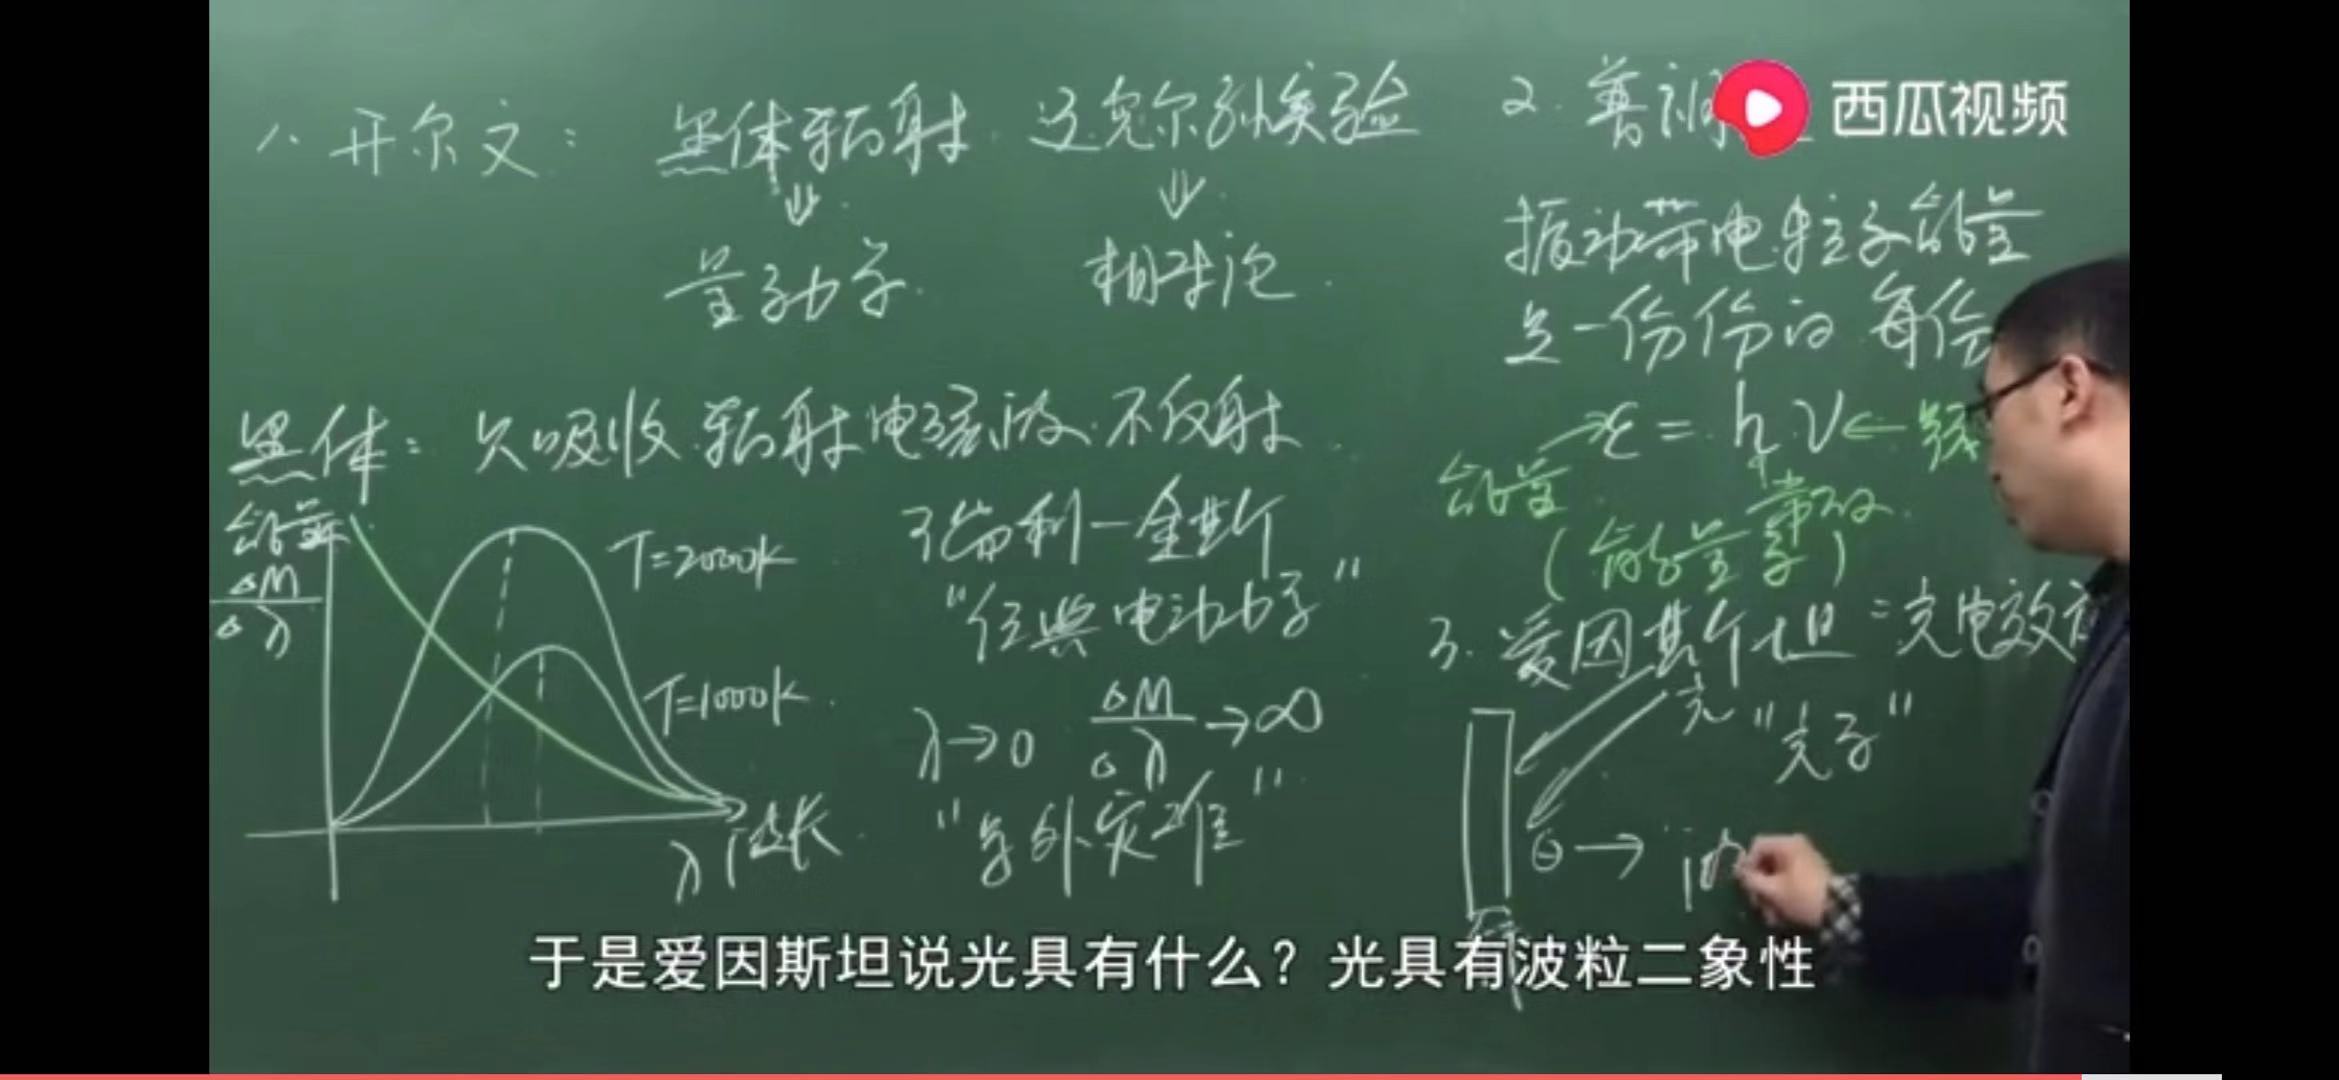 1. 开尔文： 黑体辐射. 迈克尔孙实验
⇓ ⇓
量子力学. 相对论.
黑体： 只吸收.辐射电磁波.不反射.
能量
ΔM/Δλ
T=2000K
T=1000K.
λ 波长.
瑞利-金斯
"经典电动力学"
λ→0 ΔM/Δλ→∞
"紫外灾难"
2. 普朗
西瓜视频
振动带电粒子能量
是一份份的 每份
→ε = h.ν←频
能量 常数.
(能量子)
3. 爱因斯坦：光电效应
光 "光子"
⊖→ 波
于是爱因斯坦说光具有什么？光具有波粒二象性